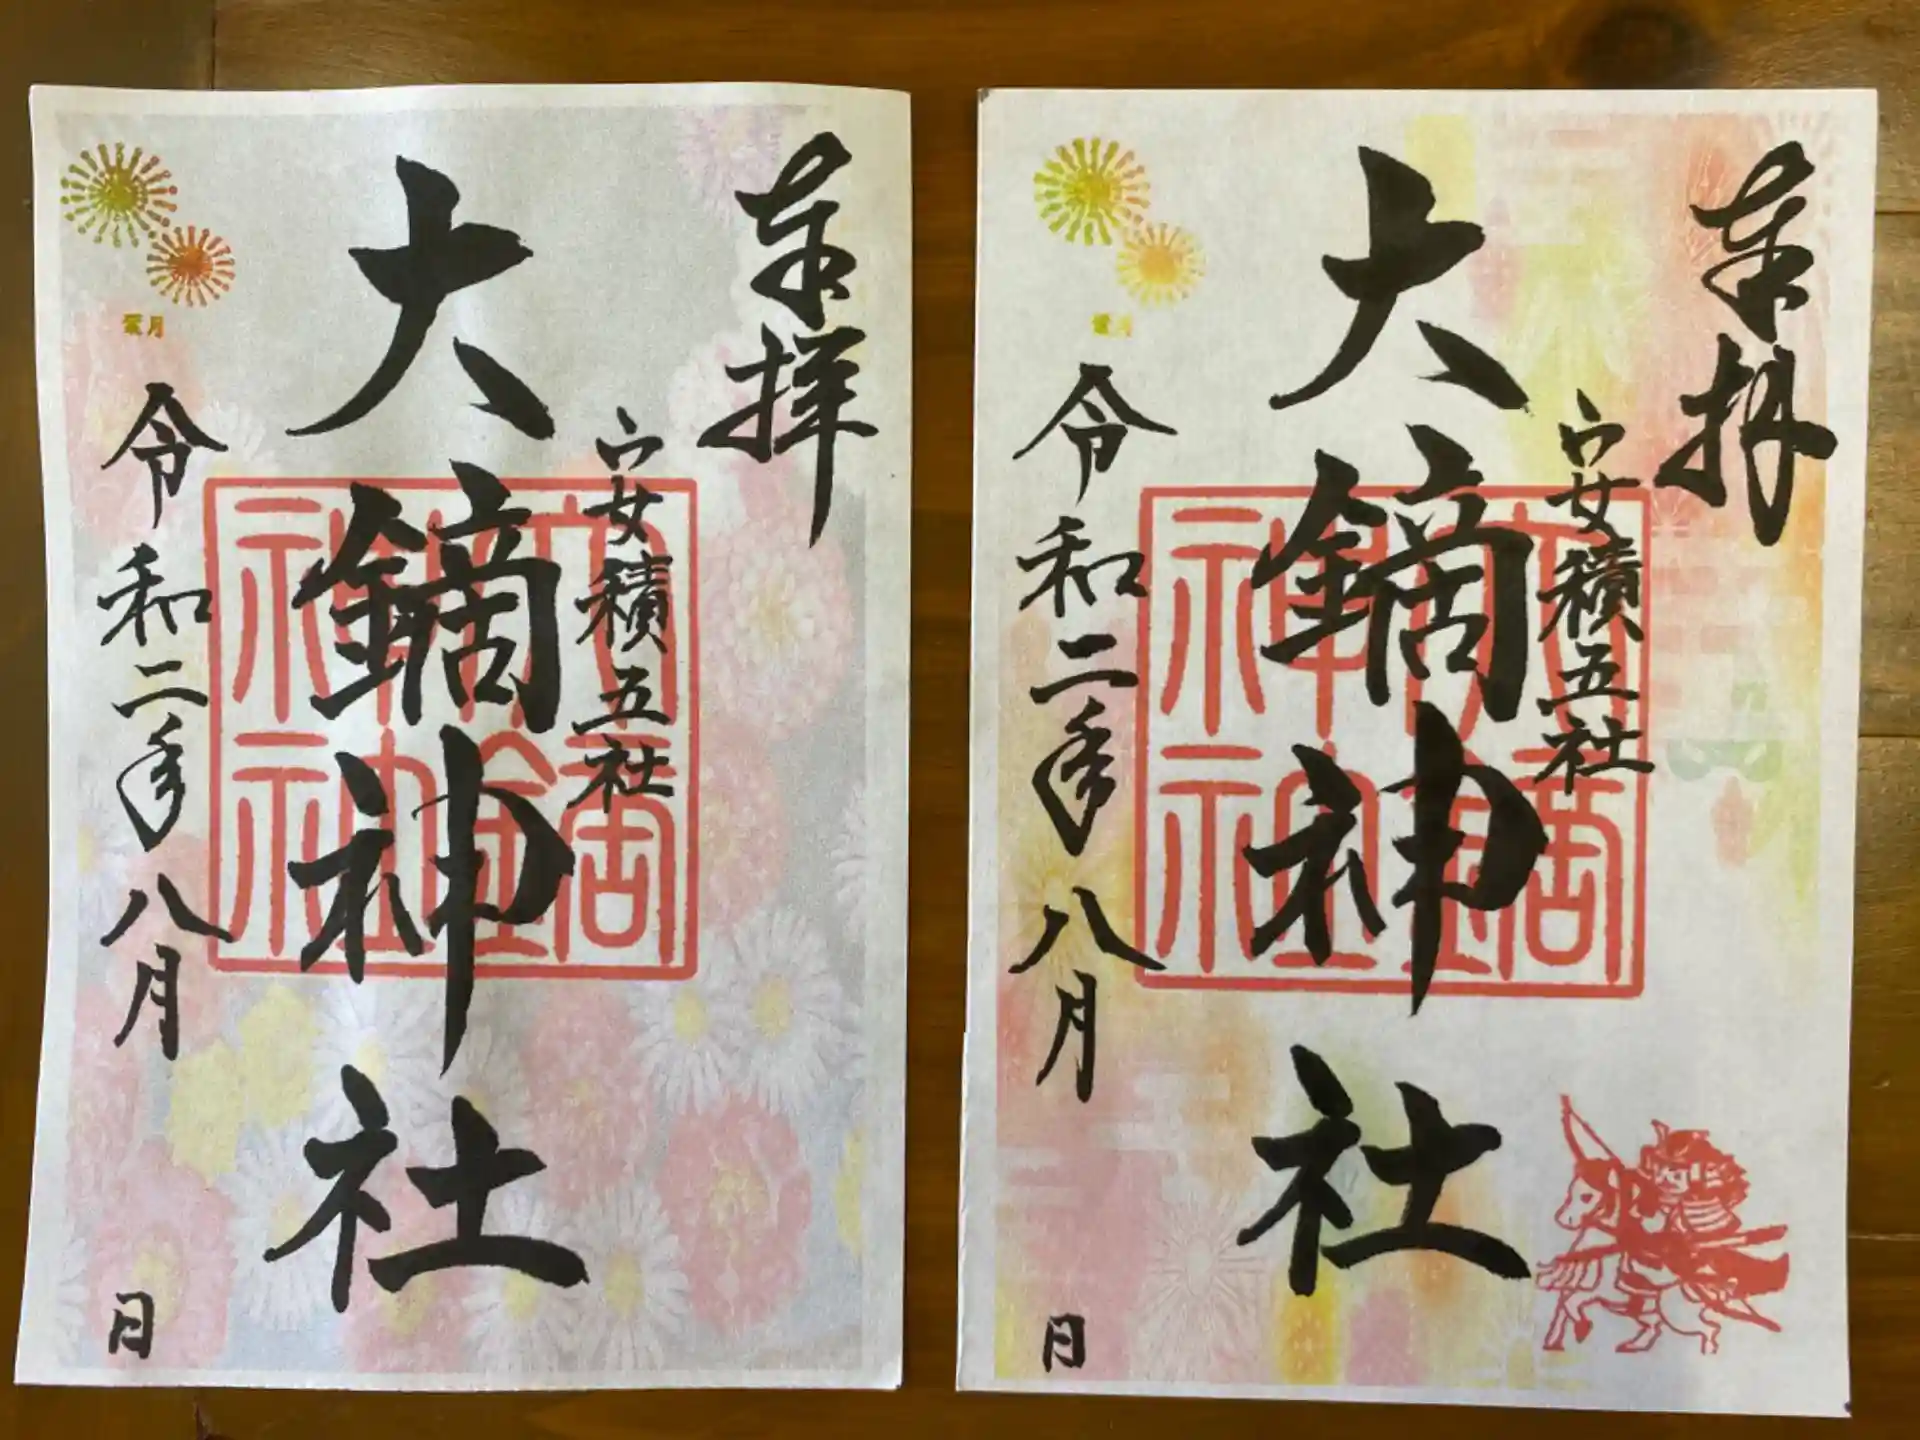 奉拝
安積五社
大鏑神社
令和二年八月
日
葉月
奉拝
安積五社
大鏑神社
令和二年八月
日
葉月